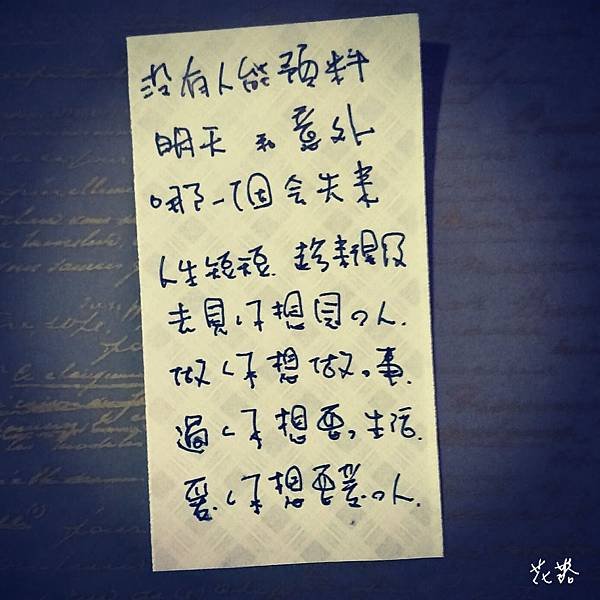 沒有人能預料
明天和意外
哪一個会先來
人生短短.趁來得及
去見你想見の人.
做你想做の事.
過你想要の生活.
愛你想要愛の人.
花路